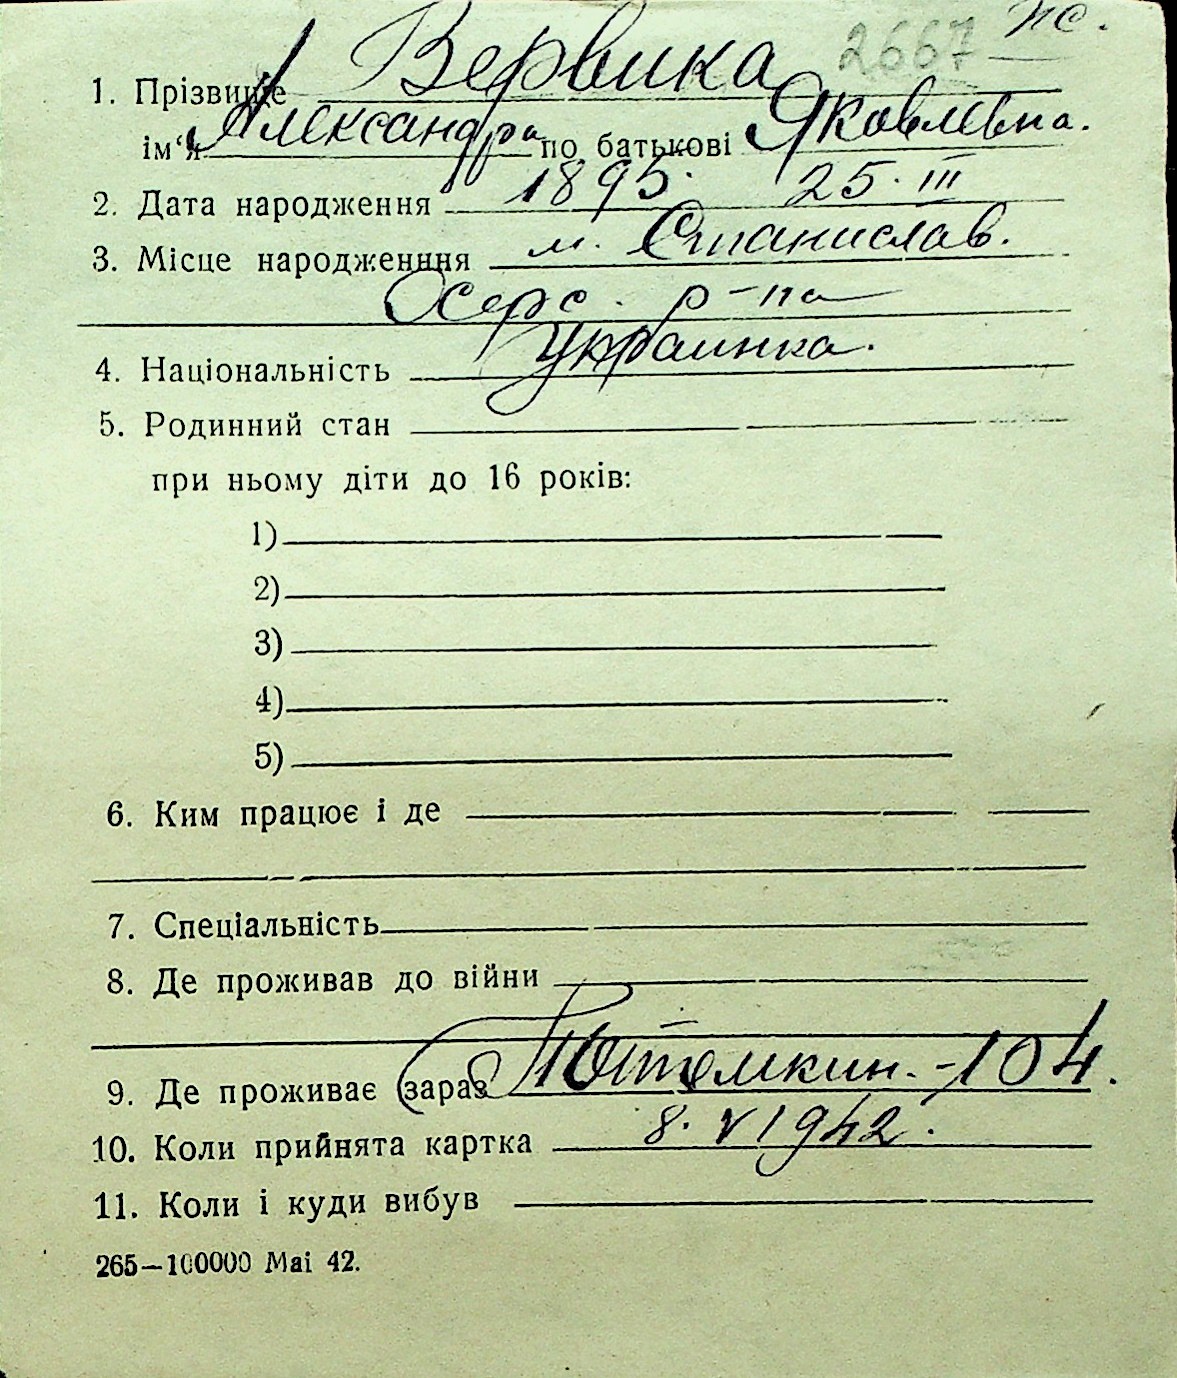 2667 пс.
1. Прізвище Вервика
ім‘я Александра по батькові Яковлевна.
2. Дата народження 1895. 25. III
3. Місце народженння м. Станислав.
р-на
4. Національність Украинка.
5. Родинний стан
при ньому діти до 16 років:
1)
2)
3)
4)
5)
6. Ким працює і де
7. Спеціальність
8. Де проживав до війни
9. Де проживає (зараз Потемкин.-104.
10. Коли прийнята картка 8. V 1942.
11. Коли і куди вибув
265—100000 Mai 42.